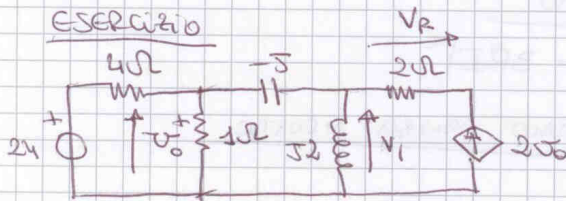 ESERCIZIO
VR
4Ω
-J
2Ω
+
24
+
v₀
1Ω
J2
V₁
2v₀